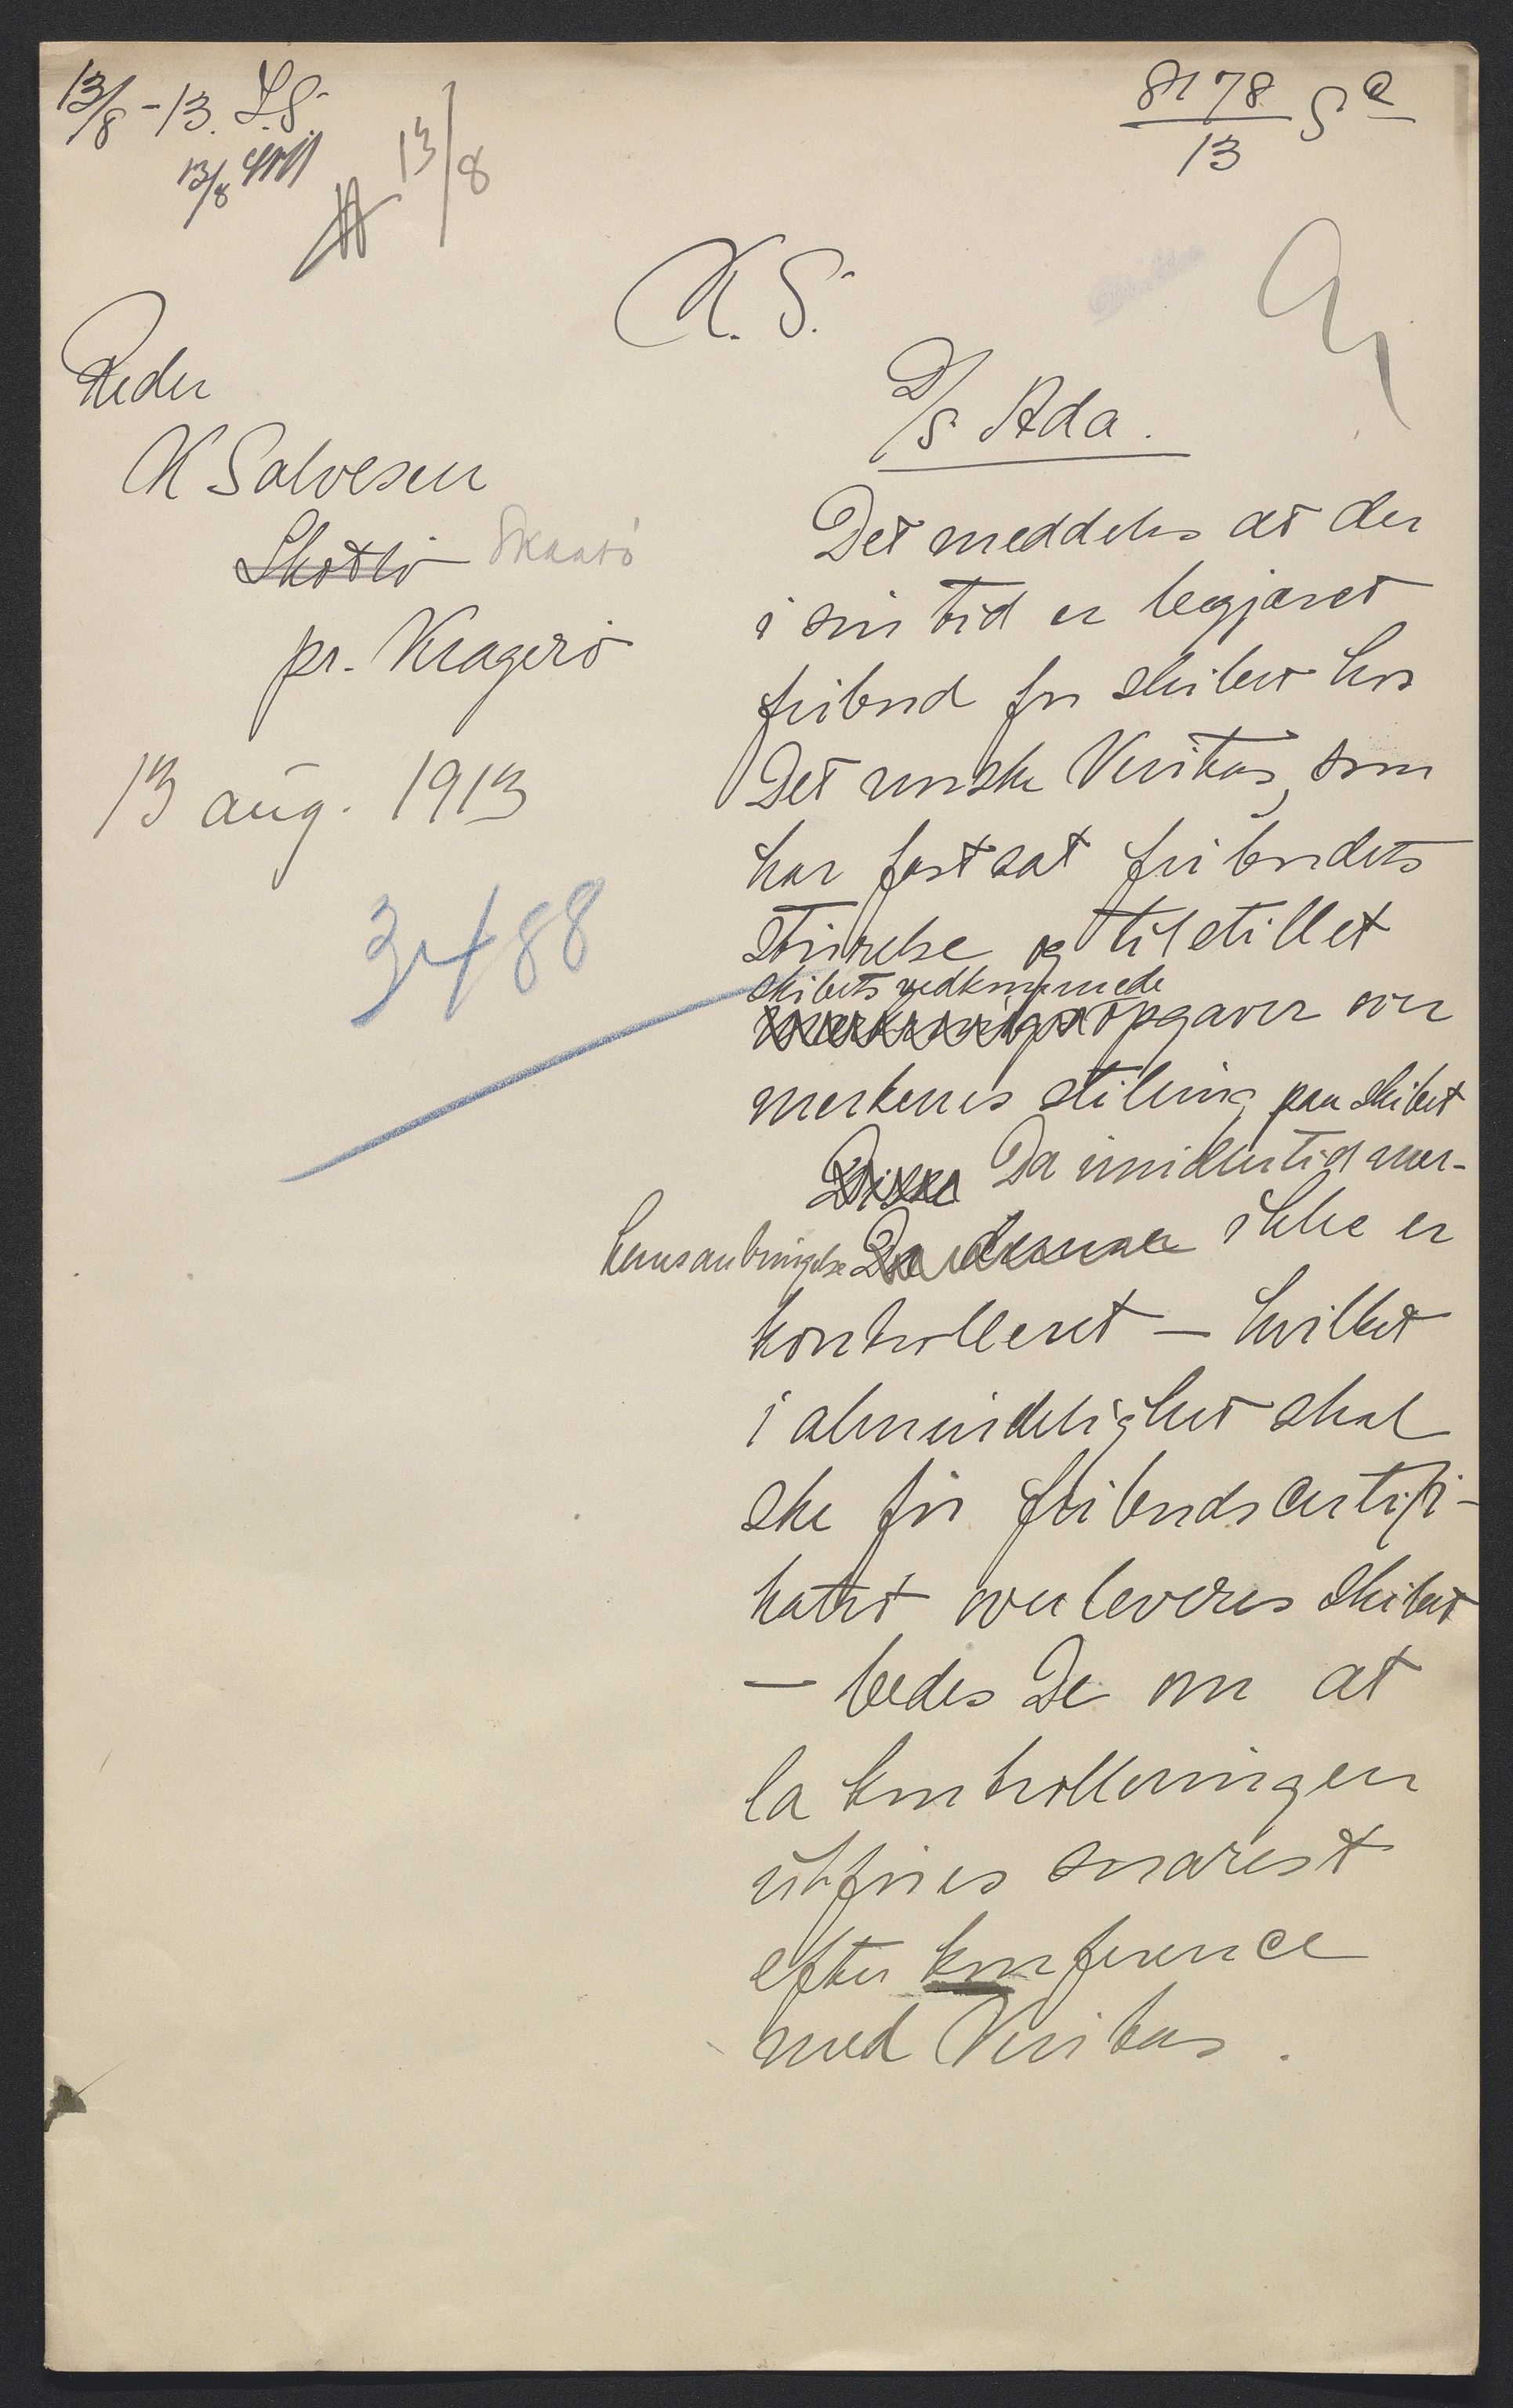 13/8 - 13. L.S.
13/8
13/8
8178 S a
13
K. S.
Reder
K Salvesen
Skotlö Skaatö
pr. Kragerö
13 aug. 1913
3488
D/S Ada.
Det meddeles at der
i sin tid er begjæret
fribord for skibet hos
Det norske Veritas, som
har fastsat fribordets
störrelse og tilstillet
skibets vedkommende
merknings opgaver over
merkenes stilling paa skibet
Disse Da imidlertid mer-
kenes anbringelse Da denne ikke er
kontrolleret — hvilket
i almindelighet skal
ske før fribordscertifi-
katet overleveres skibet
— bedes De om at
la kontrolleringen
utføres snarest
efter konference
med Veritas.